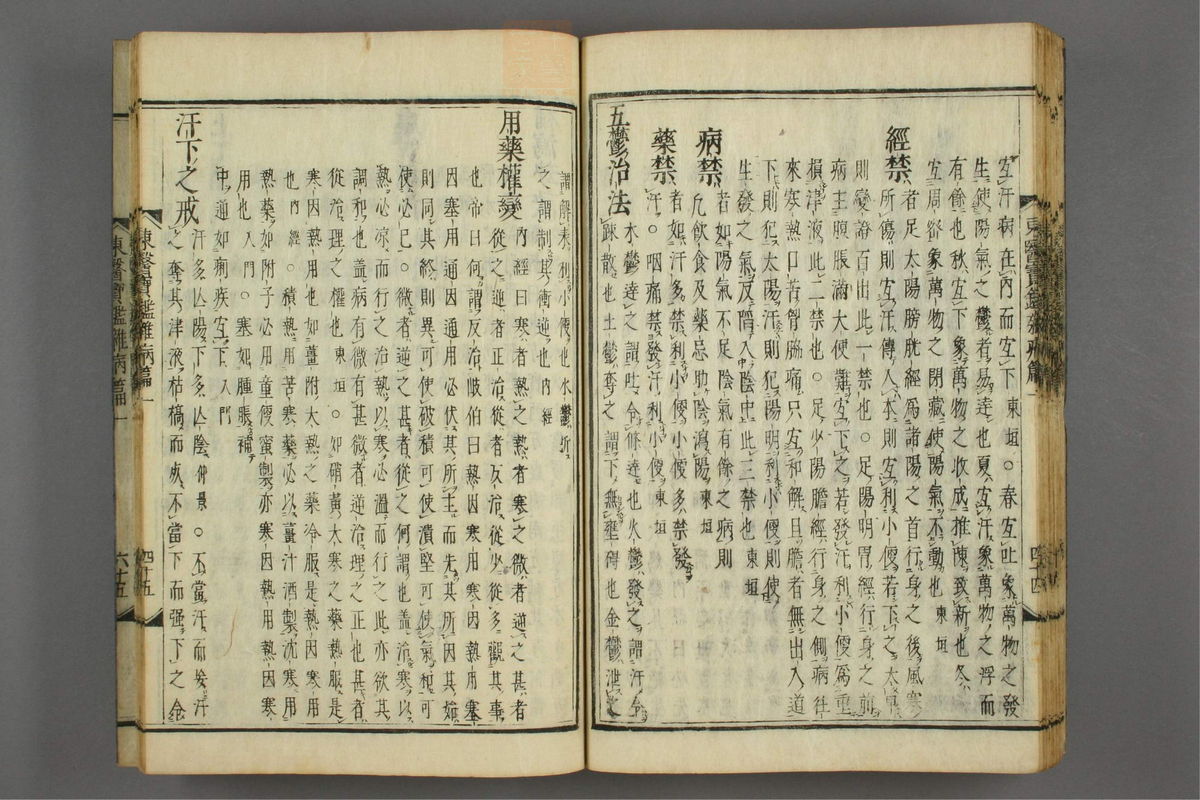 宜汗病在內而宜下東垣○春宜吐象萬物之發
生使陽氣之鬱者易達也夏宜汗象萬物之浮而
有餘也秋宜下象萬物之收成推陳致新也冬
宜周密象萬物之閉藏使陽氣不動也東垣
經禁者足太陽膀胱經爲諸陽之首行身之後風寒
所傷則宜汗傳入本則宜利小便若下之太早
則變證百出此一禁也○足陽明胃經行身之前
病主腹脹滿大便難宜下之若發汗利小便爲重
損津液此二禁也○足少陽膽經行身之側病往
來寒熱口苦胷脇痛只宜和解且膽者無出入道
下則犯太陽汗則犯陽明利小便則使
生發之氣反陷入陰中此三禁也東垣
病禁者如陽氣不足陰氣有餘之病則
凡飮食及藥忌助陰瀉陽東垣
藥禁者如汗多禁利小便小便多禁發
汗○咽痛禁發汗利小便東垣
五鬱治法木鬱達之謂吐令條達也火鬱發之謂汗令
疎散也土鬱奪之謂下無壅碍也金鬱泄之
謂解表利小便也水鬱折
之謂制其衝逆也內經
用藥權變內經曰寒者熱之熱者寒之微者逆之甚者
從之逆者正治從者反治從少從多觀其事
也帝曰何謂反治岐伯曰熱因寒用寒因熱用塞
因塞用通因通用必伏其所主而先其所因其始
則同其終則異可使破積可使潰堅可使氣和可
使必已○微者逆之甚者從之何謂也盖治寒以
熱必凉而行之治熱以寒必溫而行之此亦欲其
調和也盖微有甚微者逆治理之正也甚者
從治理之權也東垣○如硝黃大寒之藥熱服是
寒因熱用也如薑附大熱之藥冷服是熱因寒用
也內經○積熱用苦寒藥必以薑汁酒製沈寒用
熱藥如附子必用童便蜜製亦寒因熱用熱因寒
用也入門○塞如腫脹補
中通如痢疾宜下入門
汗下之戒汗多亡陽下多亡陰仲景○不當汗而妄汗
之奪其津液枯槁而死不當下而强下之令
東醫寶鑑雜病篇一
四十五
六十五